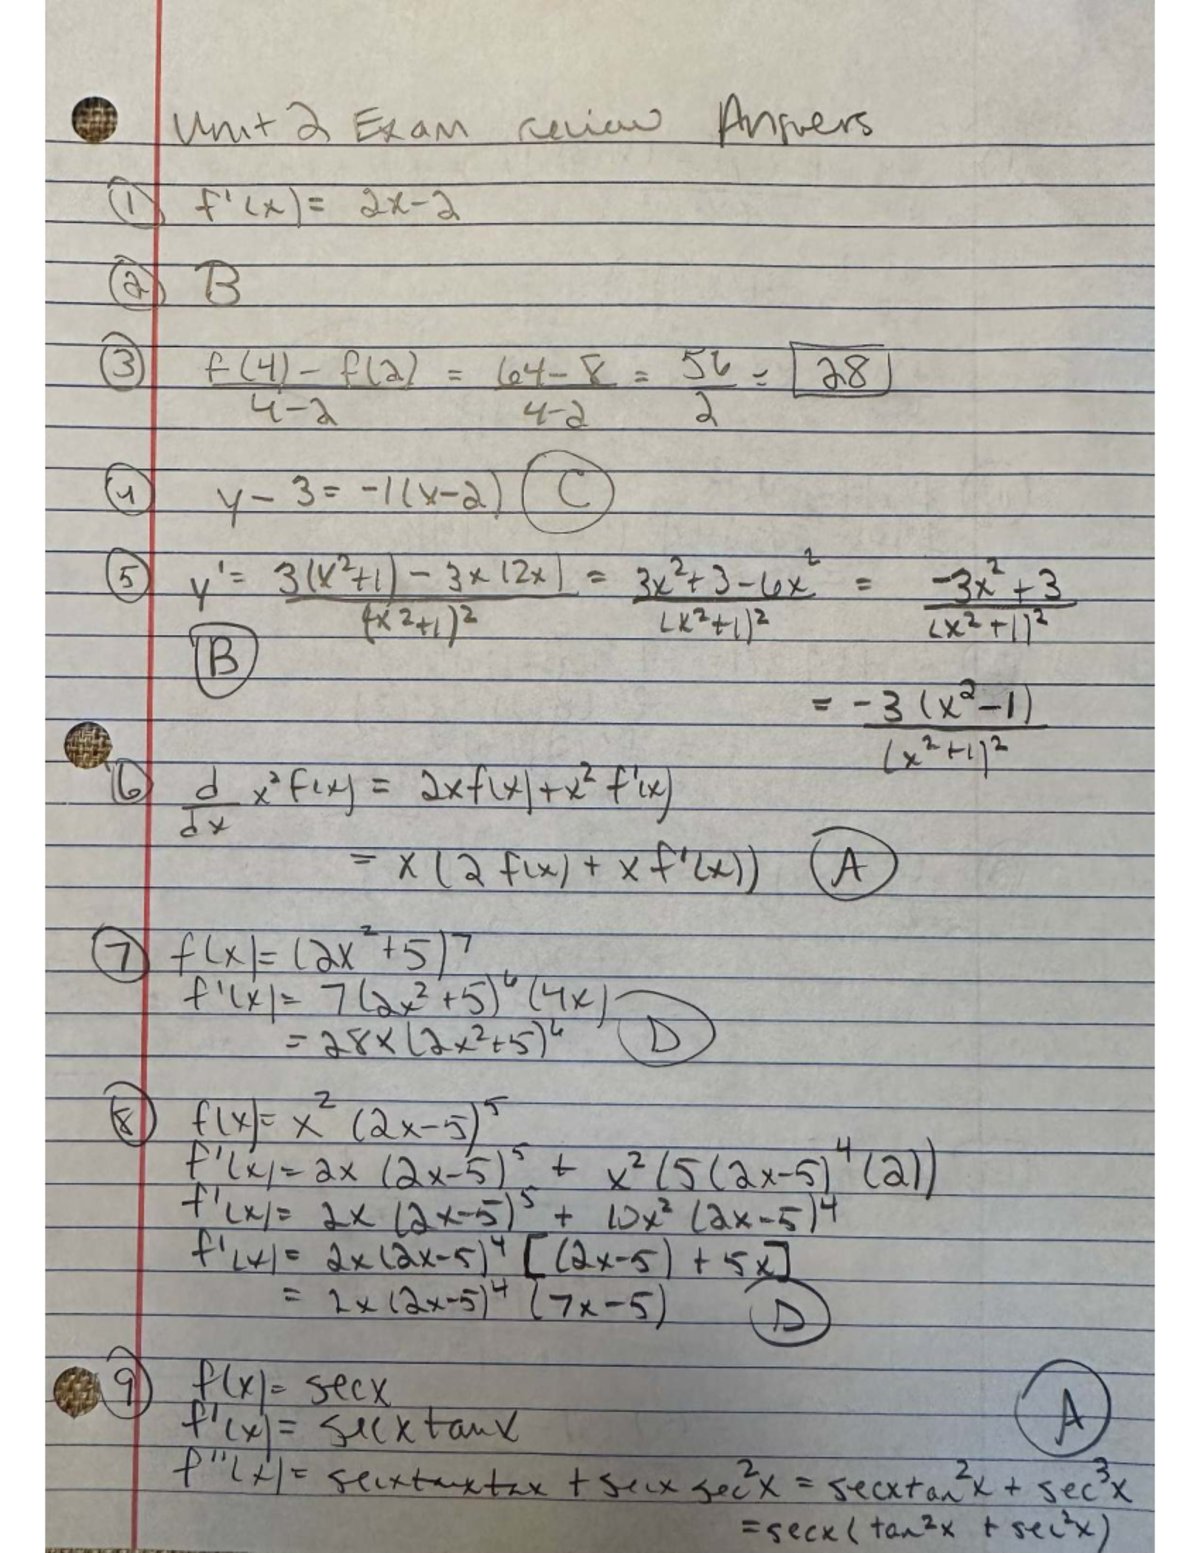 Unit 2 Exam review Answers
① f'(x) = 2x-2
② B
③ f(4) - f(2) / 4-2 = 64-8 / 4-2 = 56 / 2 = 28
④ y - 3 = -1(x-2) C
⑤ y' = 3(x²+1) - 3x(2x) / (x²+1)² = 3x²+3-6x² / (x²+1)² = -3x²+3 / (x²+1)²
B
= -3(x²-1) / (x²+1)²
⑥ d/dx x² f(x) = 2xf(x)+x² f'(x)
= x(2f(x) + xf'(x)) A
⑦ f(x)= (2x²+5)⁷
f'(x)= 7(2x²+5)⁶(4x)
= 28x(2x²+5)⁶ D
⑧ f(x)= x² (2x-5)⁵
f'(x)= 2x (2x-5)⁵ + x²(5(2x-5)⁴(2))
f'(x)= 2x (2x-5)⁵ + 10x² (2x-5)⁴
f'(x)= 2x(2x-5)⁴ [(2x-5) + 5x]
= 2x(2x-5)⁴ (7x-5) D
⑨ f(x)= secx A
f'(x)= secxtanx
f''(x)= secxtanxtanx + secx sec²x = secxtan²x + sec³x
= secx(tan²x + sec²x)